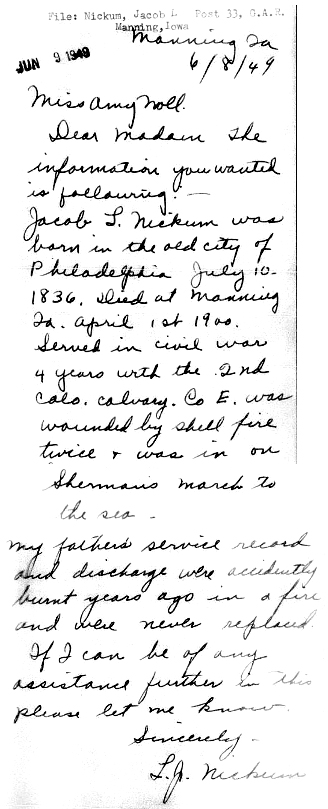 File: Nickum, Jacob L Post 33, G.A.R.
Manning, Iowa
Manning Ia
JUN 9 1949
6/8/49
Miss Amy Noll.
Dear Madam The
information you wanted
is following: —
Jacob L. Nickum was
born in the old city of
Philadelphia July 10-
1836. Died at Manning
Ia. April 1st 1900.
Served in civil war
4 years with the 2nd
Colo. calvary. Co E. was
wounded by shell fire
twice & was in on
Sherman's march to
the sea -
My fathers service record
and discharge were accidently
burnt years ago in a fire
and were never replaced.
If I can be of any
assistance further in this
please let me know.
Sincerely -
L.J. Nickum